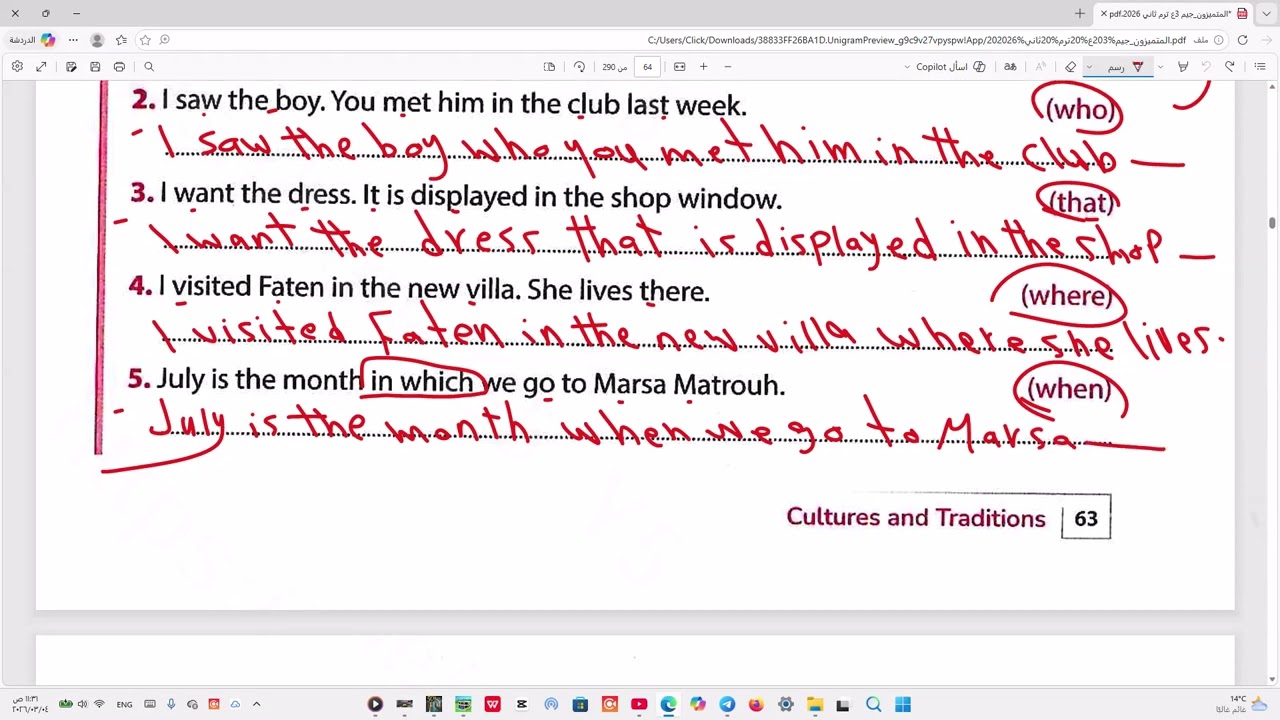 المتميزون_جيم 3ع ترم ثاني 2026.pdf*
C:/Users/Click/Downloads/38833FF26BA1D.UnigramPreview_g9c9v27vpyspw!App/202026%المتميزون_جيم%203ع%20ترم%20ثاني.pdf
ملف
الدردشة
290 من
64
اسأل Copilot
رسم
2. I saw the boy. You met him in the club last week. (who)
- I saw the boy who you met him in the club —
3. I want the dress. It is displayed in the shop window. (that)
- I want the dress that is displayed in the shop —
4. I visited Faten in the new villa. She lives there. (where)
I visited Faten in the new villa where she lives.
5. July is the month in which we go to Marsa Matrouh. (when)
- July is the month when we go to Marsa —
Cultures and Traditions 63
ENG
١١:٣١ ص
٢٠٢٦/٠٣/٠٤
14°C
غائم غالبًا